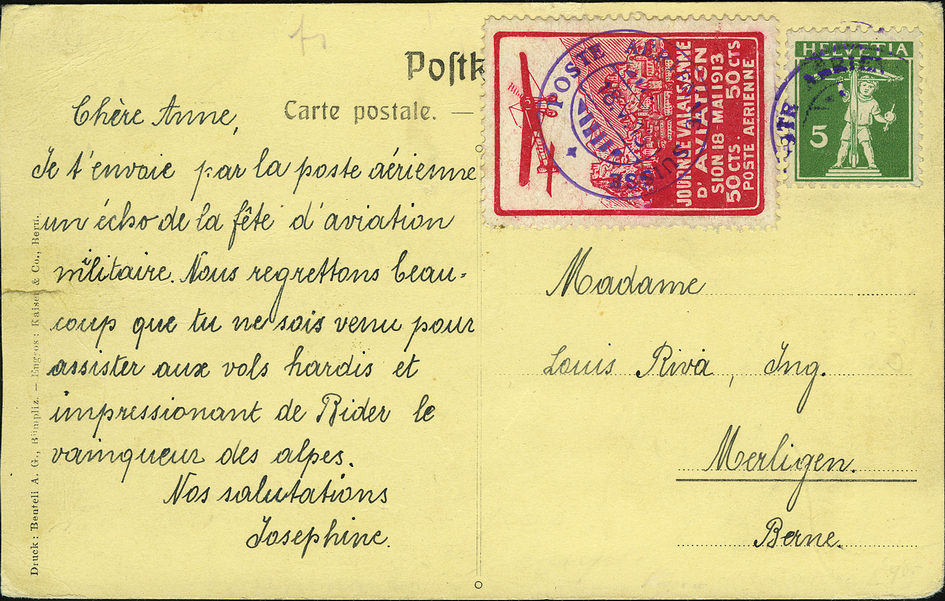 Postk
Carte postale. —
Chère Anne,
Je t'envoie par la poste aérienne
un écho de la fête d'aviation
militaire. Nous regrettons beau-
coup que tu ne sois venu pour
assister aux vols hardis et
impressionant de Bider le
vainqueur des alpes.
Nos salutations
Josephine.
Druck: Benteli A. G., Bümpliz. — Engros: Kaiser & Co., Bern.
JOURNÉE VALAISANNE
D'AVIATION
SION 18 MAI 1913
50 CTS. 50 CTS
POSTE AERIENNE
POSTE AÉR
SUISSE
HELVETIA
5
STE AERIEN
Madame
Louis Riva, Ing.
Merligen.
Berne.